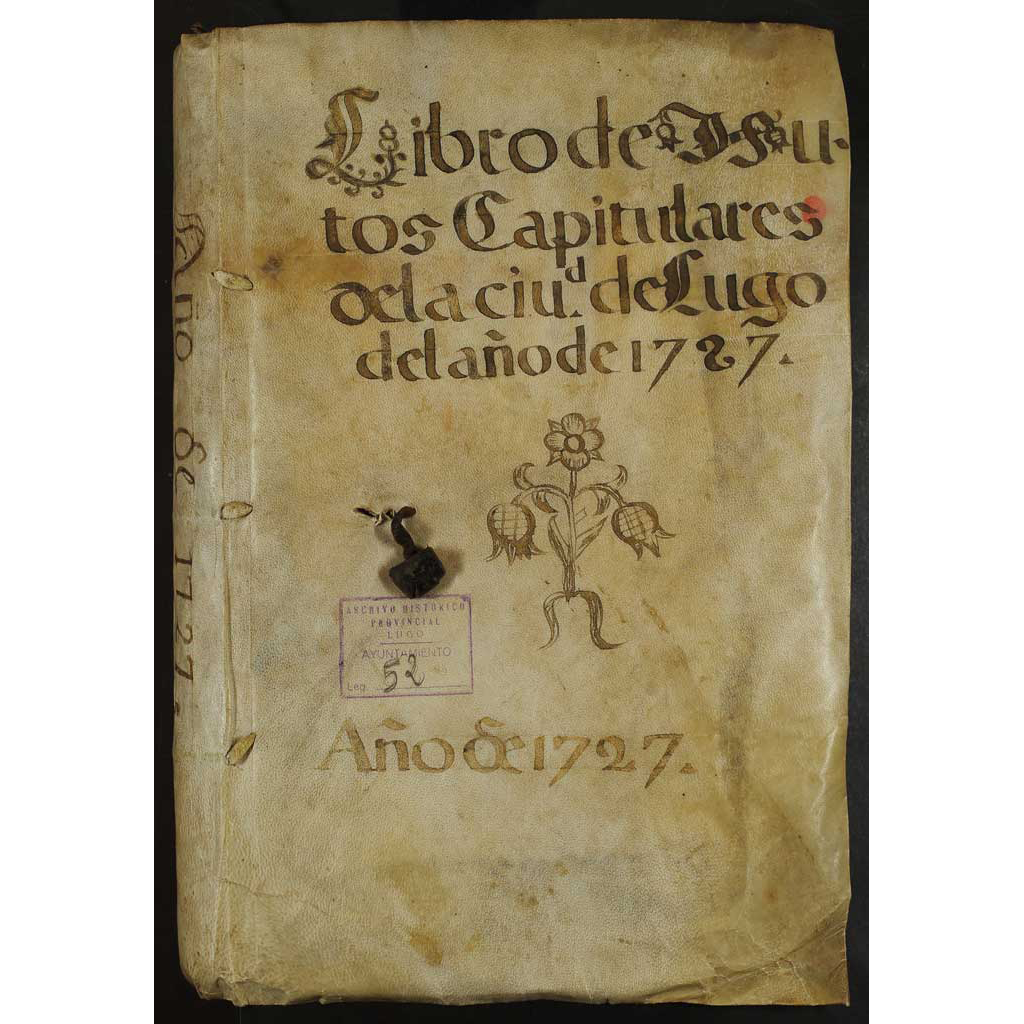 Libro de Au-
tos Capitulares
de la ciu.d de Lugo
del año de 1727.
ARCHIVO HISTÓRICO
PROVINCIAL
LUGO
AYUNTAMIENTO
Leg. 52
Año de 1727.
Año de 1727.